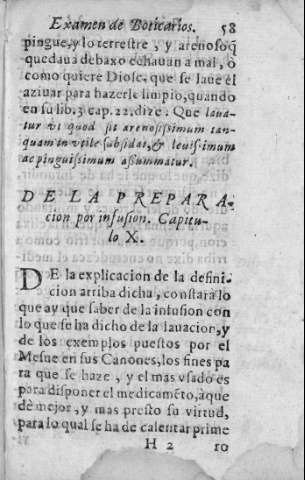 Examen de Boticarios. 58
pingue, y lo terrestre, y arenoso q̃
quedaua debaxo echauan a mal, o
como quiere Diosc. que se laue el
aziuar para hazerle limpio, quando
en su lib. 3 cap. 22. dize. Que laua-
tur vt quod sit arenosissimum tan-
quam invtile subsidat, & leuissimum
ac pinguissimum assummatur.
DE LA PREPARA-
cion por infusion. Capitu-
lo X.
DE la explicacion de la defini-
cion arriba dicha, constara lo
que ay que saber de la infusion con
lo que se ha dicho de la lauacion, y
de los exemplos puestos por el
Mesue en sus Canones, los fines pa
ra que se haze, y el mas vsado es
para disponer el medicamẽto, a que
dè mejor, y mas presto su virtud,
para lo qual se ha de calentar prime
H 2 ro